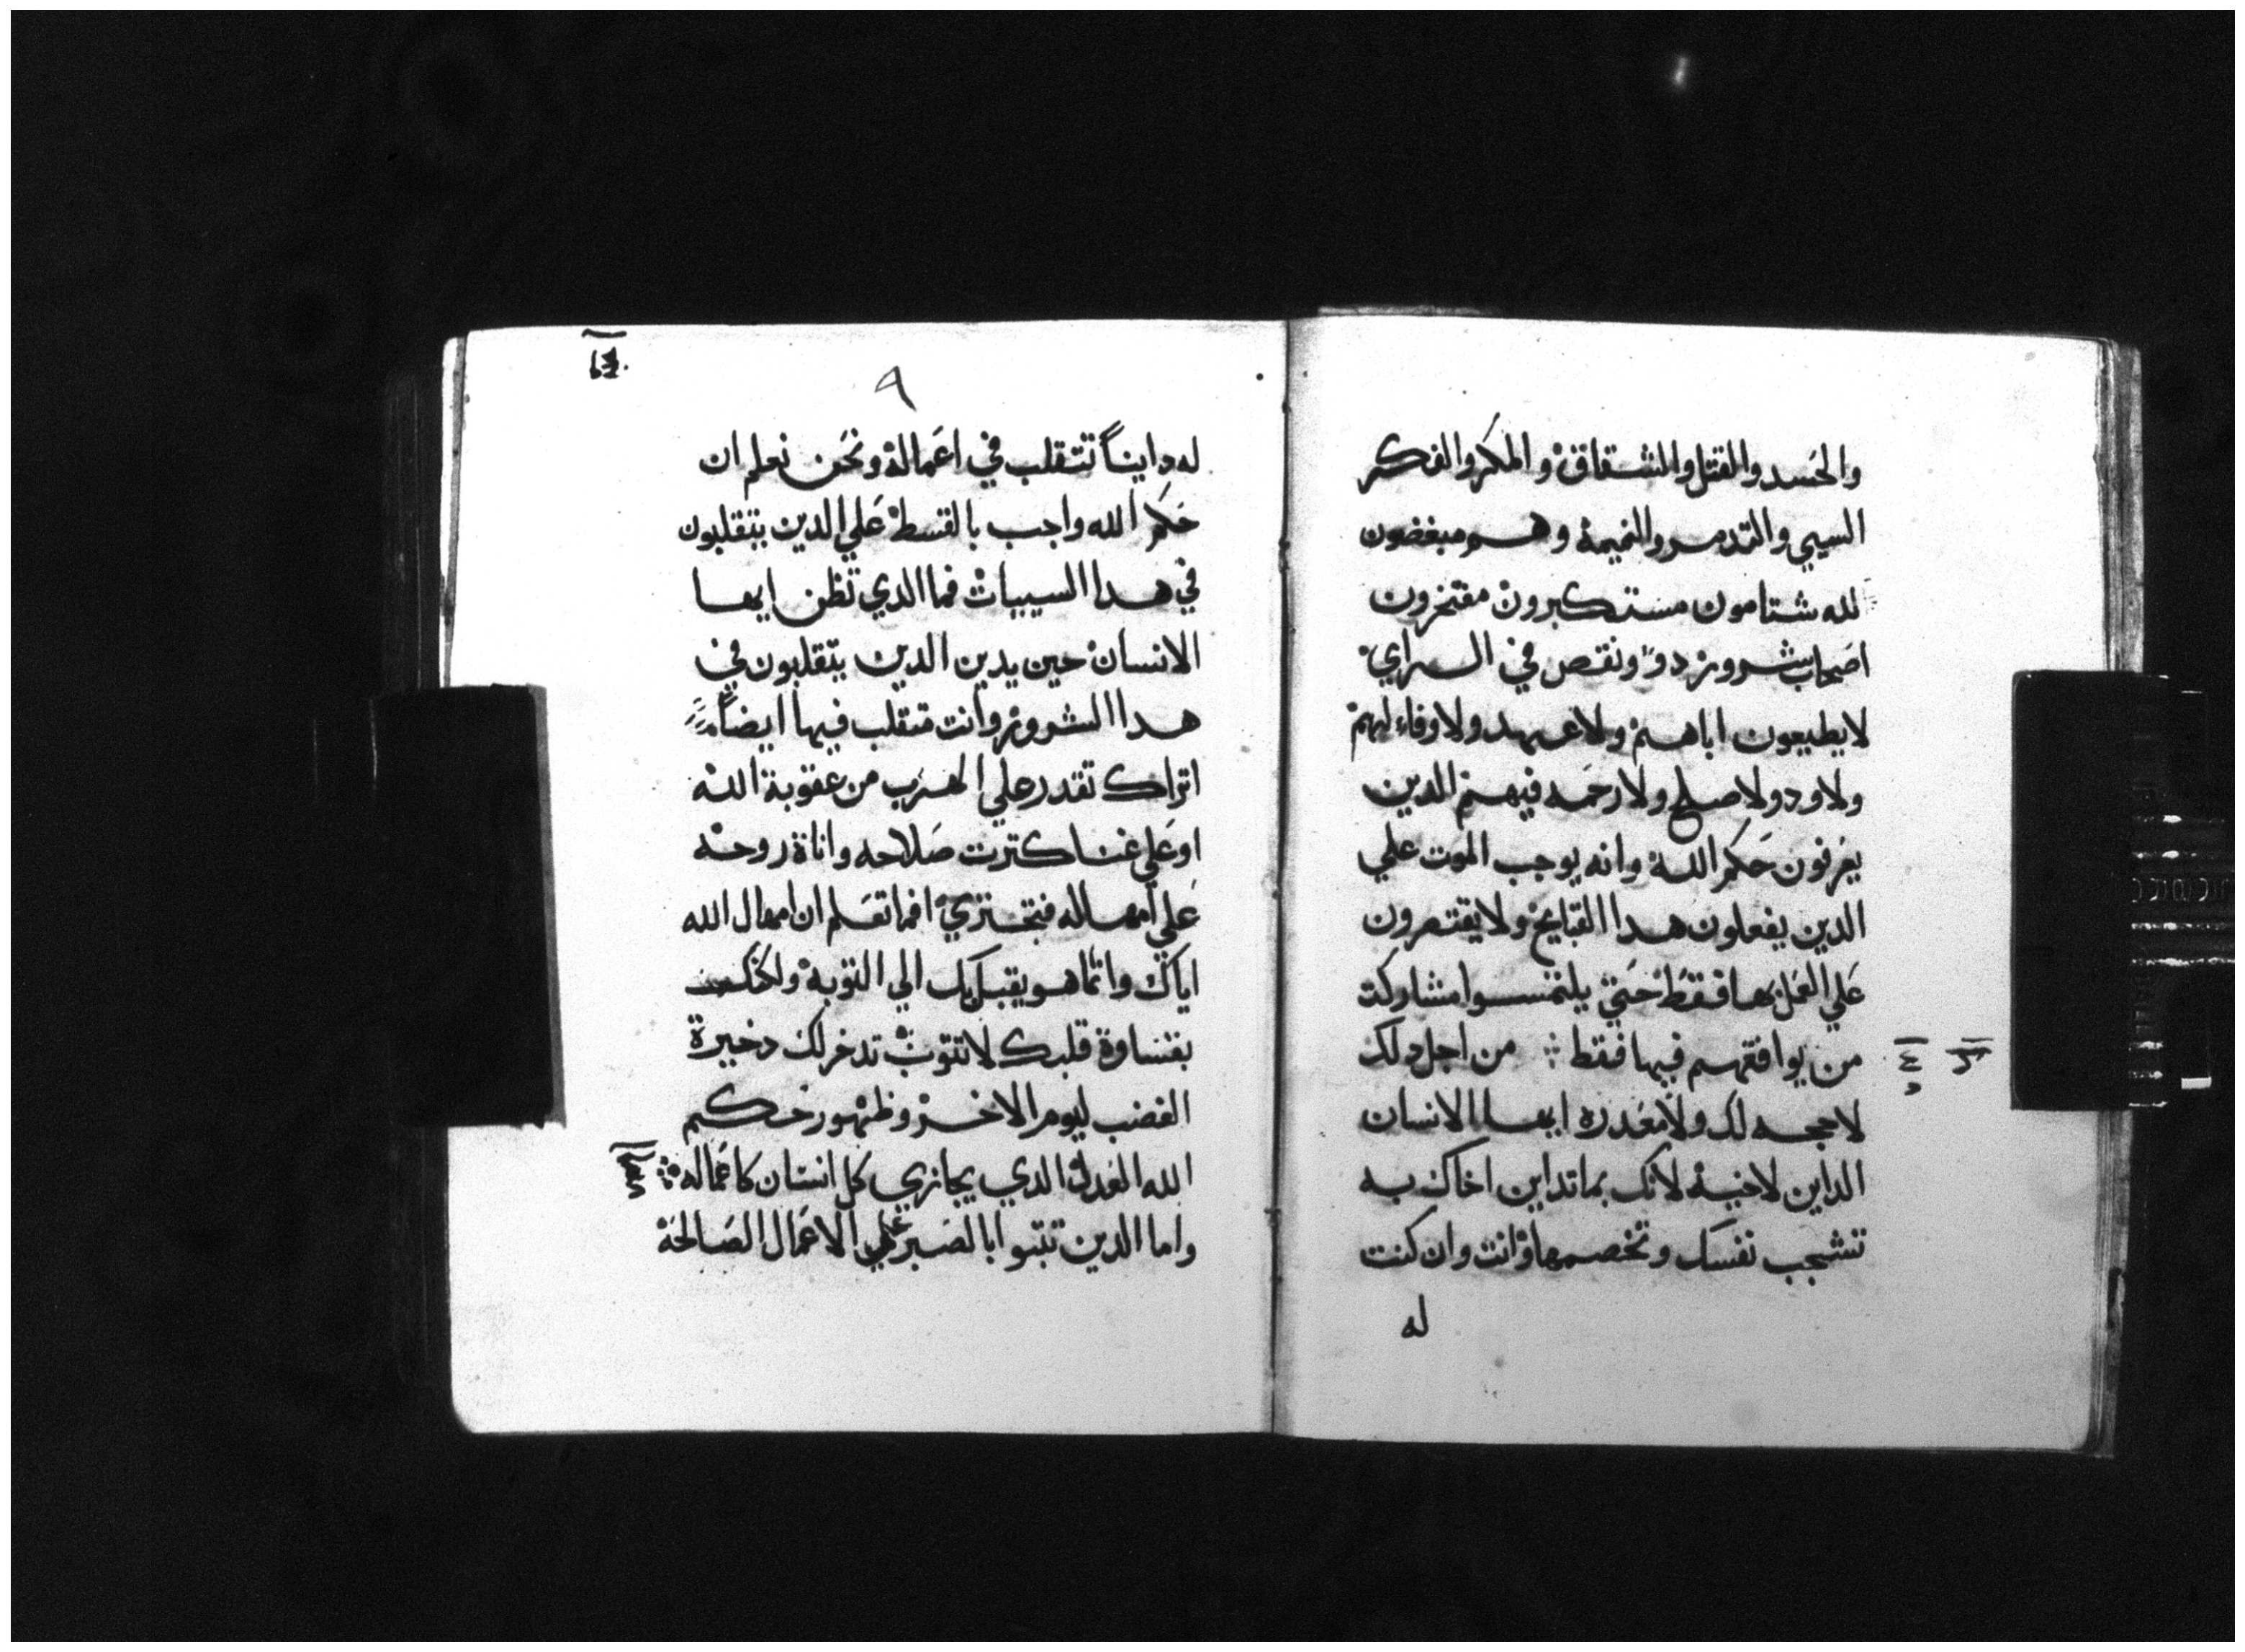 والحسد والقتل والشقاق والمكر والفكر
السيي والتدمر والنميمة وهم مبغضون
لله شتامون مستكبرون مفتخرون
اصحاب شرور دو ونقص في الراي
لا يطيعون اباهم ولا عهد ولا وفاء لهم
ولا ود ولا صلح ولا رحمه فيهم الدين
يعرفون حكم الله وانه يوجب الموت علي
الدين يفعلون هدا القبايح ولا يقتصرون
علي العمل بها فقط حتي يلتمسوا مشاركة
من يوافقهم فيها فقط ⁘ من اجل دلك
لا حجه لك ولا معدره ايها الانسان
الداين لاخيه لانك بما تداين اخاك به
تشجب نفسك وتخصمها وانت وان كنت
له
٩
له داينا تتقلب في اعماله ونحن نعلم ان
حكم الله واجب بالقسط علي الدين يتقلبون
في هدا السييات فما الدي تظن ايها
الانسان حين يدين الدين يتقلبون في
هدا الشرور وانت متقلب فيها ايضا
اتراك تقدر علي الهرب من عقوبة الله
او علي غنا كترت صلاحه واناة روحه
علي امهاله فتجتري افما تعلم ان امهال الله
اياك وانما هو يقبل بك الي التوبة ولكنك
بقساوة قلبك لا تتوب تدخر لك دخيرة
الغضب ليوم الاخر وظهور حكم
الله العدل الدي يجازي كل انسان كاعماله ⁘
واما الدين تبتوا بالصبر علي الاعمال الصالحة